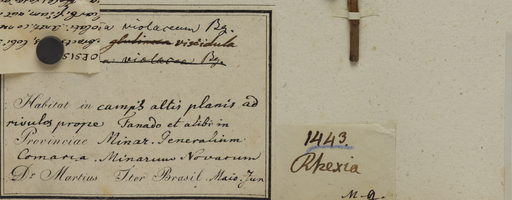 a violaceum Bg.
glutinea viridula
a violacea Bg.
Habitat in campis altis planis ad
rivulos prope Fanado et alibi in
Provinciae Minar. Generalium
Comarca Minarum Novarum
Dr Martius Iter Brasil. Maio. Jun
1443.
Rhexia
M. a.